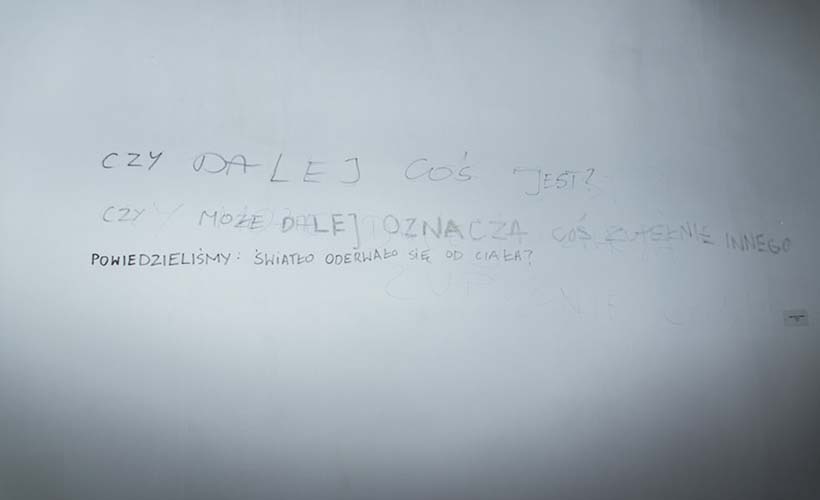 CZY DALEJ COŚ JEST?
CZY MOŻE DALEJ OZNACZA COŚ ZUPEŁNIE INNEGO
POWIEDZIELIŚMY: ŚWIATŁO ODERWAŁO SIĘ OD CIAŁA?
NIE